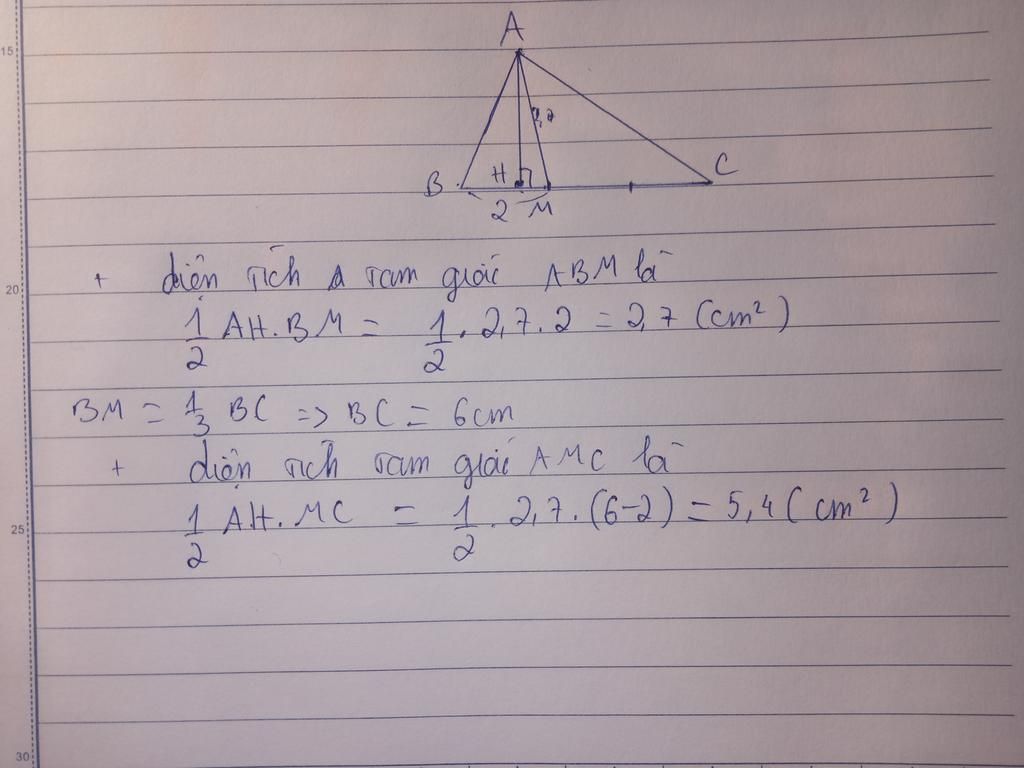 A
2,7
B H C
2 M
+ diện tích tam giác ABM là
1/2 AH.BM = 1/2 . 2,7 . 2 = 2,7 (cm²)
BM = 1/3 BC => BC = 6cm
+ diện tích tam giác AMC là
1/2 AH.MC = 1/2 . 2,7 . (6-2) = 5,4 (cm²)
15
20
25
30